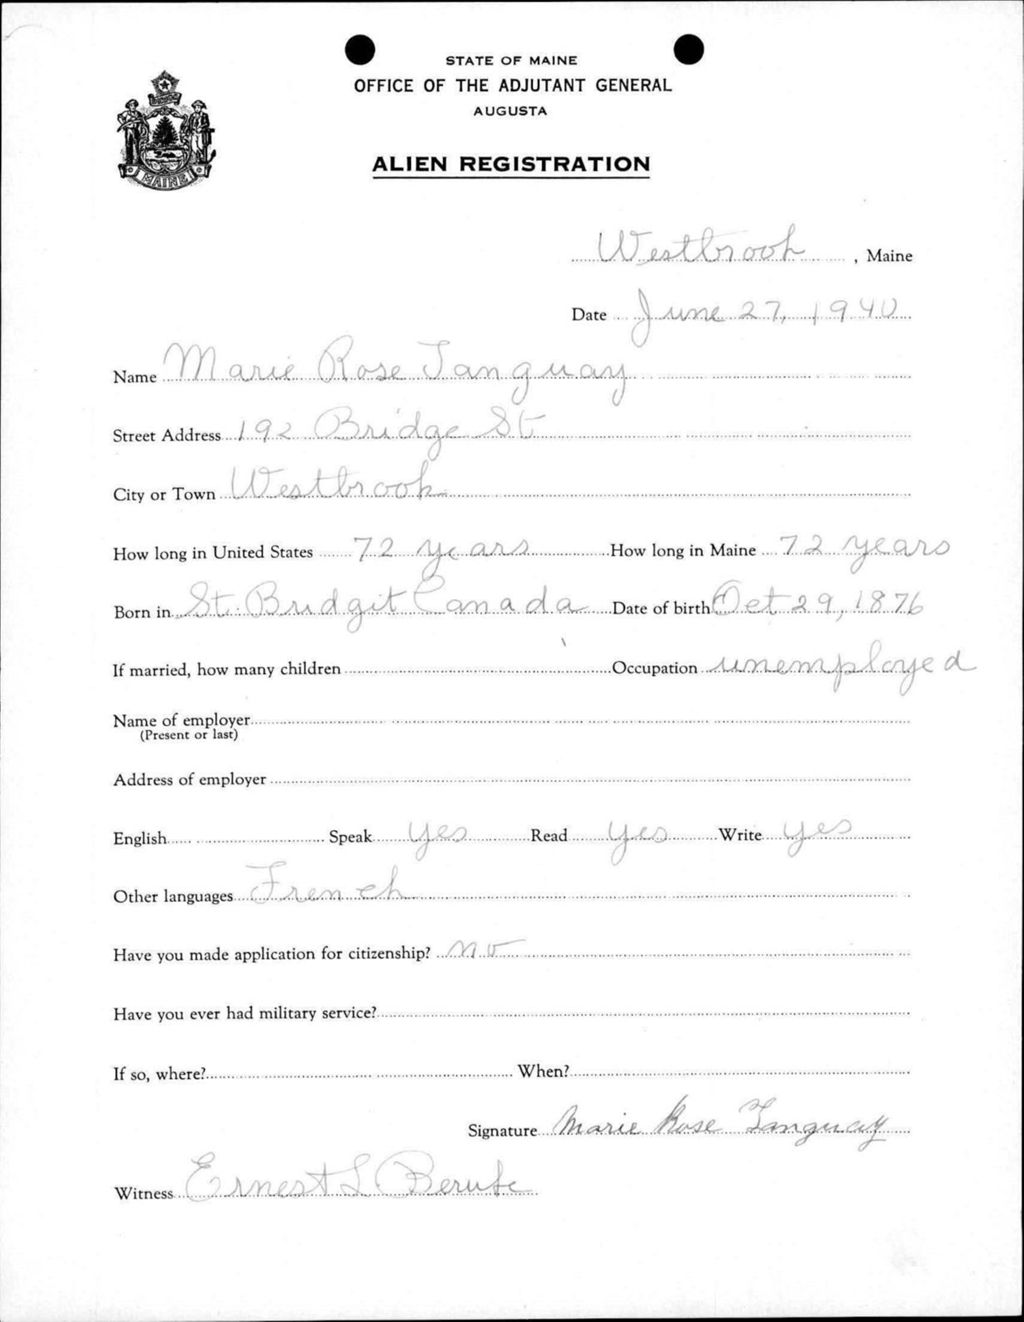 STATE OF MAINE
OFFICE OF THE ADJUTANT GENERAL
AUGUSTA
ALIEN REGISTRATION
MAINE
Westbrook, Maine
Date June 27, 1940
Name Marie Rose Tanguay
Street Address 192 Bridge St
City or Town Westbrook
How long in United States 72 years How long in Maine 72 years
Born in St. Bridgit Canada Date of birth Oct 29, 1876
If married, how many children Occupation unemployed
Name of employer
(Present or last)
Address of employer
English Speak yes Read yes Write yes
Other languages French
Have you made application for citizenship? no
Have you ever had military service?
If so, where? When?
Signature Marie Rose Tanguay
Witness Ernest L